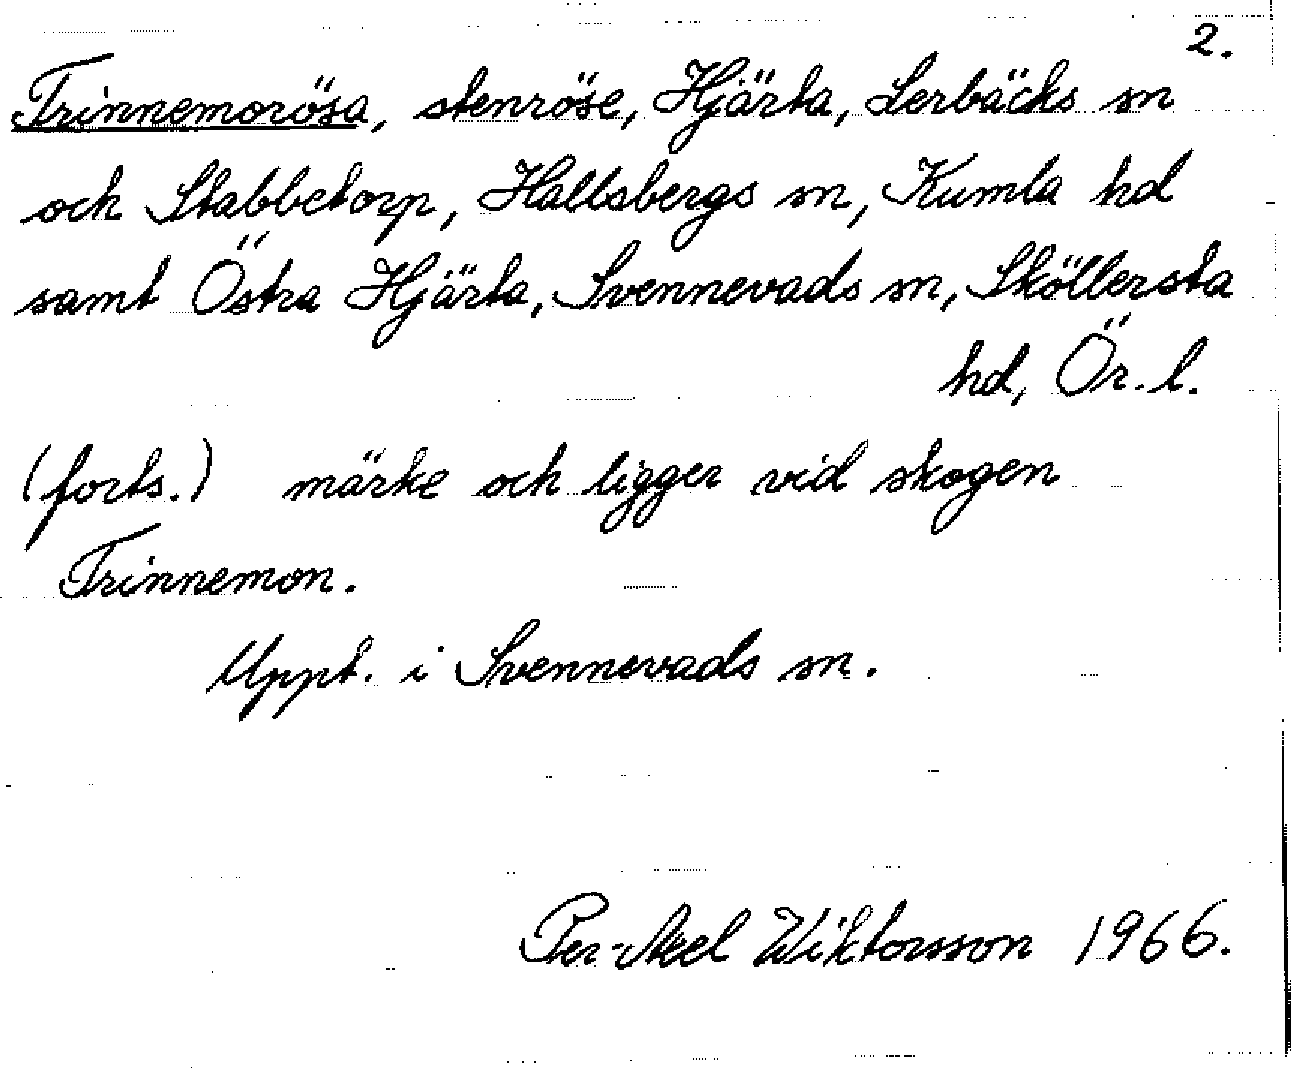 2.
Trinnemorösa, stenröse, Hjärta, Lerbäcks sn
och Stabbetorp, Hallsbergs sn, Kumla hd
samt Östra Hjärta, Svennevads sn, Sköllersta
hd, Ör. l.
(forts.) märke och ligger vid skogen
Trinnemon.
Uppt. i Svennevads sn.
Per-Axel Wiktorsson 1966.